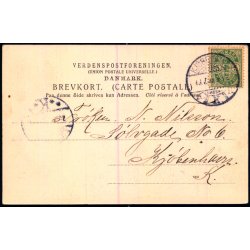 VERDENSPOSTFORENINGEN.
(UNION POSTALE UNIVERSELLE.)
DANMARK.
BREVKORT. (CARTE POSTALE)
Paa denne Side skrives kun Adressen. Côté réservé à l'adresse.
Frøken N. Nilsson
Sølvgade No 6
Kjøbenhavn
K.